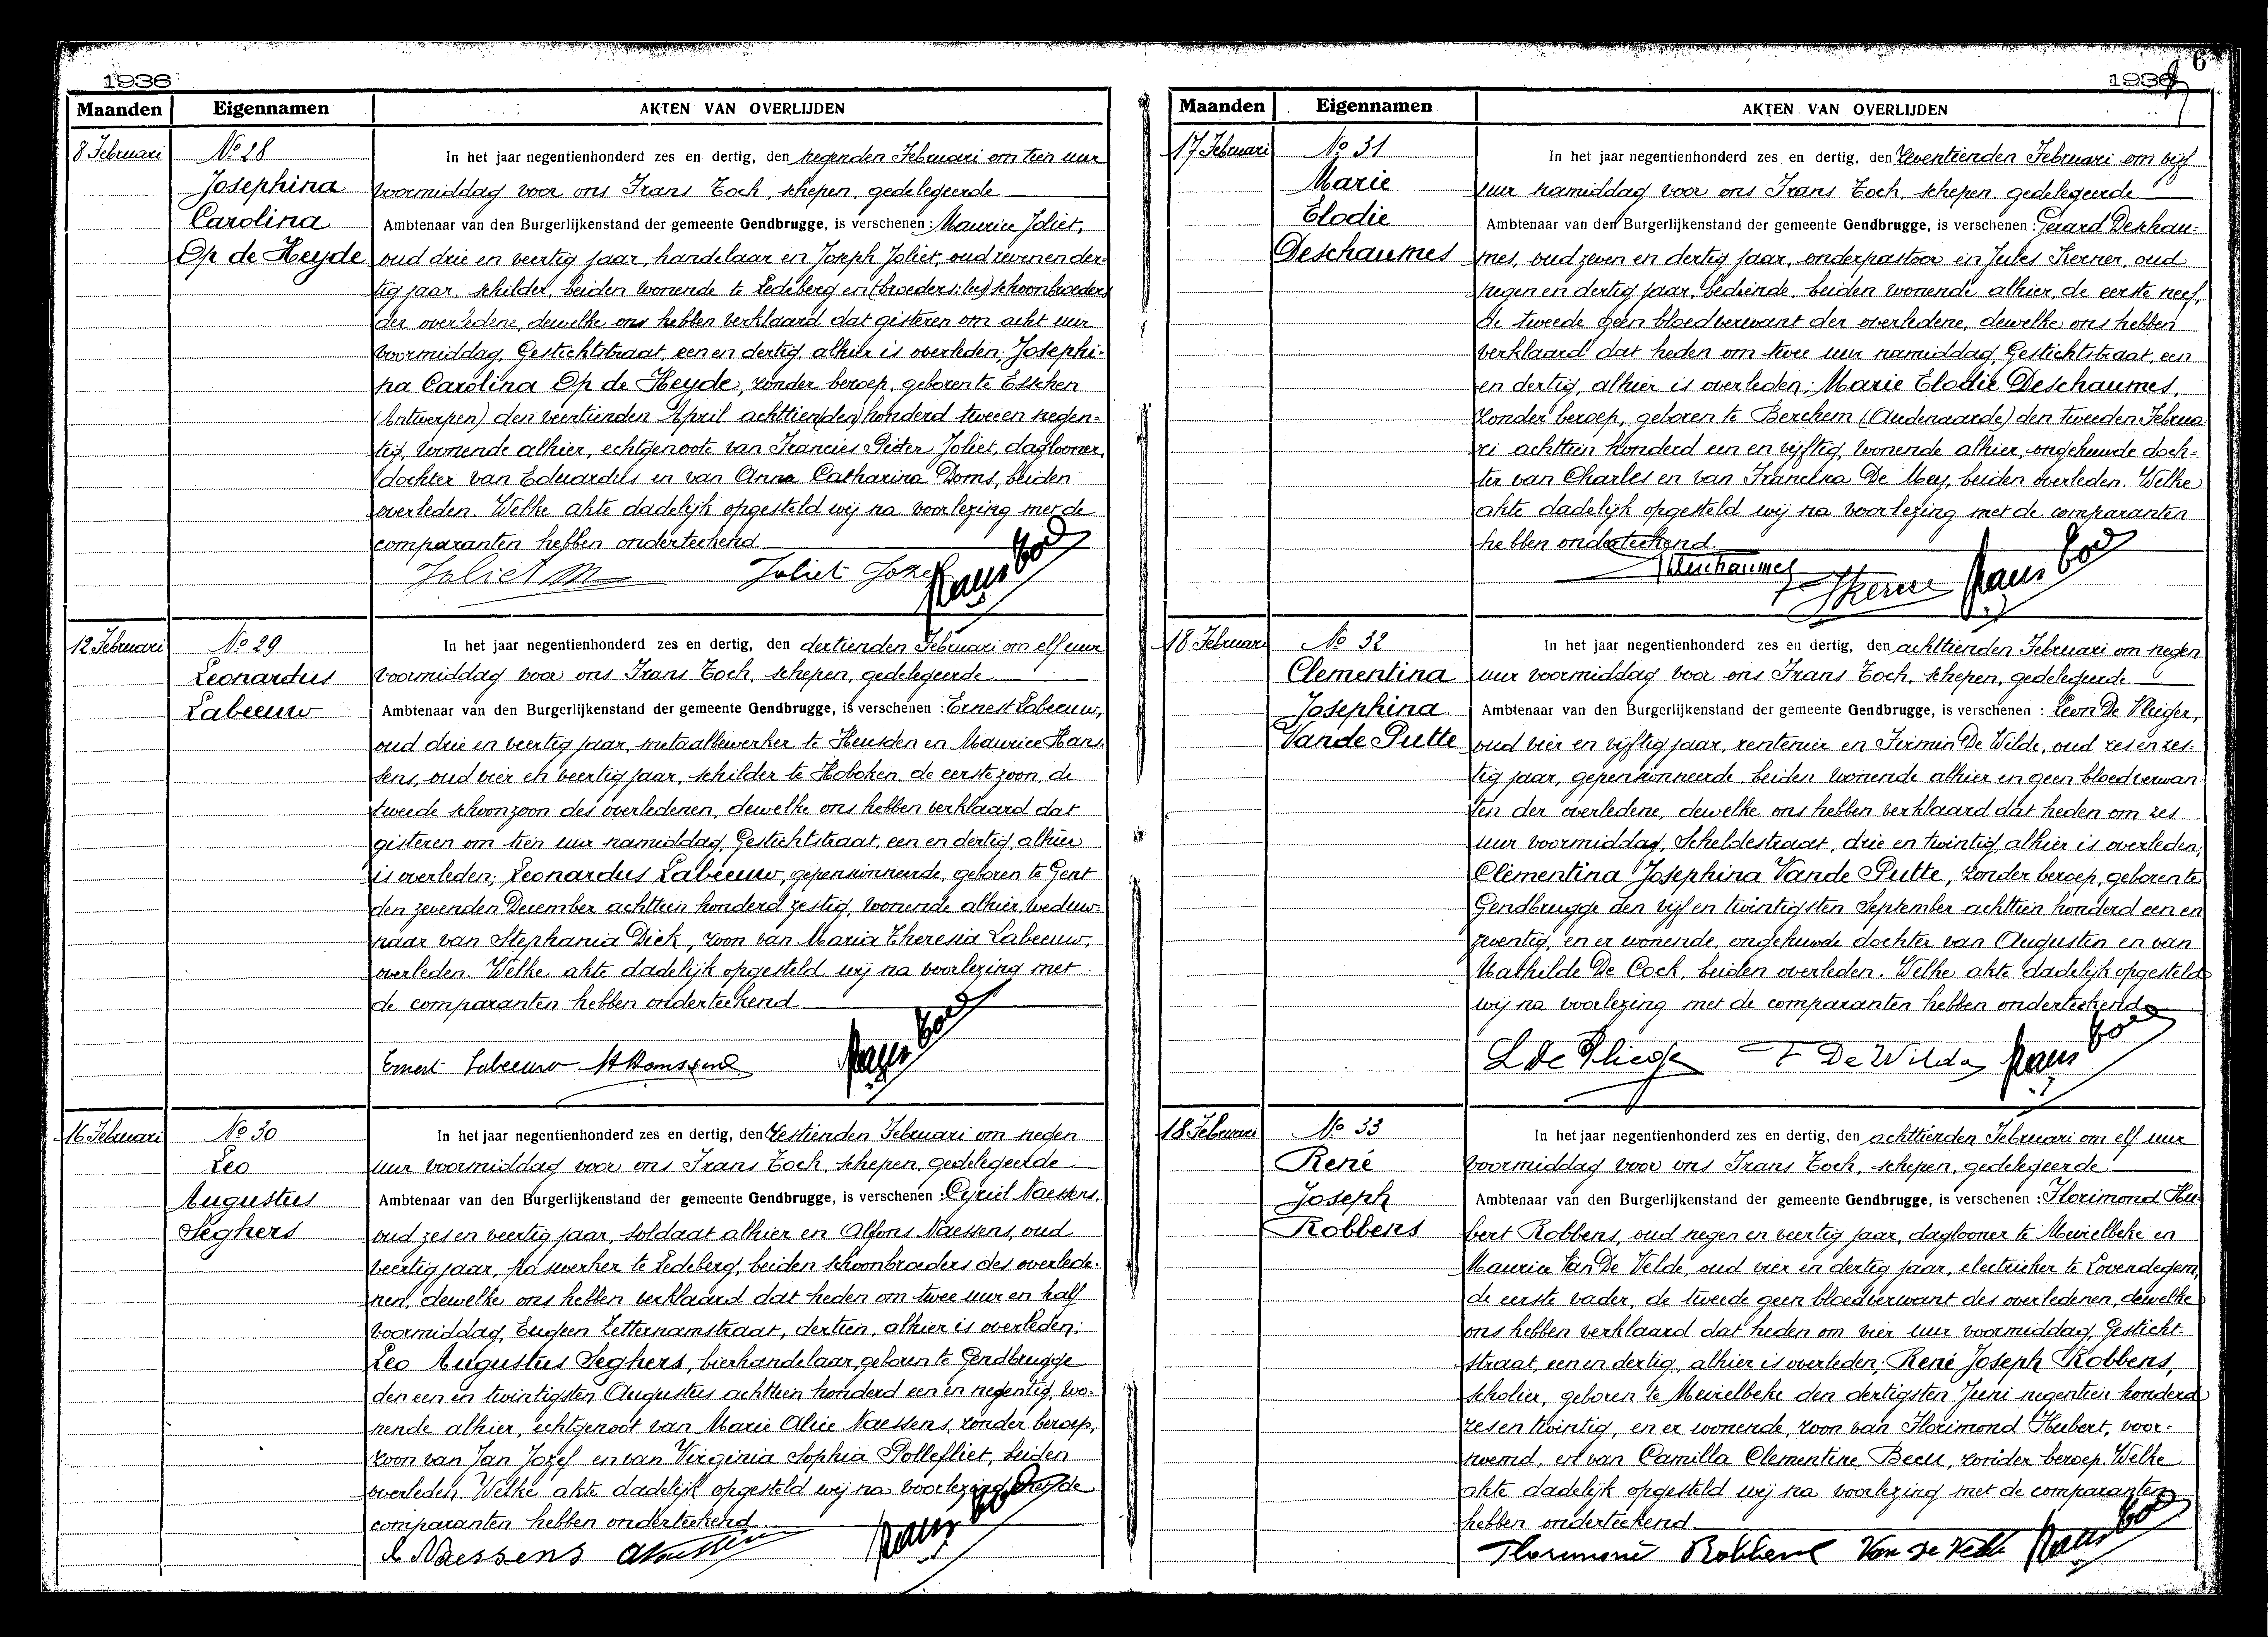 1936
Maanden Eigennamen AKTEN VAN OVERLIJDEN
8 Februari
No 28
Josephina
Carolina
Op de Heyde
In het jaar negentienhonderd zes en dertig, den negenden Februari om tien uur
voormiddag voor ons Frans Toch, schepen, gedelegeerde
Ambtenaar van den Burgerlijkenstand der gemeente Gendbrugge, is verschenen: Maurice Joliet,
oud drie en veertig jaar, handelaar en Joseph Joliet, oud zeven en der-
tig jaar, schilder, beiden wonende te Ledeberg en (broeders: lees) schoonbroeders
der overledene, dewelke ons hebben verklaard dat gisteren om acht uur
voormiddag, Gestichtstraat, een en dertig, alhier is overleden; Josephi-
na Carolina Op de Heyde, zonder beroep, geboren te Esschen
(Antwerpen) den veertienden April achttien (den) honderd twee en negen-
tig, wonende alhier, echtgenoote van Francies Pieter Joliet, daglooner,
dochter van Eduardus en van Anna Catharina Doms, beiden
overleden. Welke akte dadelijk opgesteld wij na voorlezing met de
comparanten hebben onderteekend.
Joliet M Joliet Jozef Frans Toch
12 Februari
No 29
Leonardus
Labeeuw
In het jaar negentienhonderd zes en dertig, den dertienden Februari om elf uur
voormiddag voor ons Frans Toch, schepen, gedelegeerde
Ambtenaar van den Burgerlijkenstand der gemeente Gendbrugge, is verschenen: Ernest Labeeuw,
oud drie en veertig jaar, metaalbewerker te Heusden en Maurice Hans-
sens, oud vier en veertig jaar, schilder te Hoboken, de eerste zoon, de
tweede schoonzoon des overledenen, dewelke ons hebben verklaard dat
gisteren om tien uur namiddag, Gestichtstraat, een en dertig, alhier
is overleden; Leonardus Labeeuw, gepensionneerde, geboren te Gent
den zevenden December achttien honderd zestig, wonende alhier, weduw-
naar van Stephania Dick, zoon van Maria Theresia Labeeuw,
overleden. Welke akte dadelijk opgesteld wij na voorlezing met
de comparanten hebben onderteekend
Ernest Labeeuw M Hanssens Frans Toch
16 Februari
No 30
Leo
Augustus
Seghers
In het jaar negentienhonderd zes en dertig, den zestienden Februari om negen
uur voormiddag voor ons Frans Toch, schepen, gedelegeerde
Ambtenaar van den Burgerlijkenstand der gemeente Gendbrugge, is verschenen: Cyriel Naessens,
oud zes en veertig jaar, soldaat alhier en Alfons Naessens, oud
veertig jaar, glaswerker te Ledeberg, beiden schoonbroeders des overlede-
nen, dewelke ons hebben verklaard dat heden om twee uur en half
voormiddag, Eugeen Zetternamstraat, dertien, alhier is overleden;
Leo Augustus Seghers, bierhandelaar, geboren te Gendbrugge
den een en twintigsten Augustus achttien honderd een en negentig, wo-
nende alhier, echtgenoot van Marie Alice Naessens, zonder beroep,
zoon van Jan Jozef en van Virginia Sophia Pollefliet, beiden
overleden. Welke akte dadelijk opgesteld wij na voorlezing met de
comparanten hebben onderteekend.
Naessens Frans Toch
1936
6
Maanden Eigennamen AKTEN VAN OVERLIJDEN
17 Februari
No 31
Marie
Elodie
Deschaumes
In het jaar negentienhonderd zes en dertig, den zeventienden Februari om vijf
uur namiddag voor ons Frans Toch, schepen, gedelegeerde
Ambtenaar van den Burgerlijkenstand der gemeente Gendbrugge, is verschenen: Gerard Deschau-
mes, oud zeven en dertig jaar, onderpastoor en Jules Kerner, oud
negen en dertig jaar, bediende, beiden wonende alhier, de eerste neef,
de tweede geen bloedverwant der overledene, dewelke ons hebben
verklaard dat heden om twee uur namiddag, Gestichtstraat, een
en dertig, alhier is overleden; Marie Elodie Deschaumes,
zonder beroep, geboren te Berchem (Audenaarde) den tweeden Februa-
ri achttien honderd een en vijftig, wonende alhier, ongehuwde doch-
ter van Charles en van Francisca De Mey, beiden overleden. Welke
akte dadelijk opgesteld wij na voorlezing met de comparanten
hebben onderteekend.
Deschaumes Frans Toch
18 Februari
No 32
Clementina
Josephina
Vande Putte
In het jaar negentienhonderd zes en dertig, den achttienden Februari om negen
uur voormiddag voor ons Frans Toch, schepen, gedelegeerde
Ambtenaar van den Burgerlijkenstand der gemeente Gendbrugge, is verschenen: Leon De Vlieger,
oud vier en vijftig jaar, rentenier en Firmin De Wilde, oud zes en zes-
tig jaar, gepensionneerde, beiden wonende alhier en geen bloedverwan-
ten der overledene, dewelke ons hebben verklaard dat heden om zes
uur voormiddag, Scheldestraat, drie en twintig, alhier is overleden;
Clementina Josephina Vande Putte, zonder beroep, geboren te
Gendbrugge den vijf en twintigsten September achttien honderd een en
zeventig, en er wonende, ongehuwde dochter van Augusten en van
Mathilde De Cock, beiden overleden. Welke akte dadelijk opgesteld
wij na voorlezing met de comparanten hebben onderteekend
L De Vlieger F De Wilde Frans Toch
18 Februari
No 33
René
Joseph
Robbens
In het jaar negentienhonderd zes en dertig, den achttienden Februari om elf uur
voormiddag voor ons Frans Toch, schepen, gedelegeerde
Ambtenaar van den Burgerlijkenstand der gemeente Gendbrugge, is verschenen: Florimond Hu-
bert Robbens, oud negen en veertig jaar, daglooner te Meirelbeke en
Maurice Van De Velde, oud vier en dertig jaar, electrieker te Lovendegem,
de eerste vader, de tweede geen bloedverwant des overledenen, dewelke
ons hebben verklaard dat heden om vier uur voormiddag, Gesticht-
straat, een en dertig, alhier is overleden; René Joseph Robbens,
scholier, geboren te Meirelbeke den dertigsten Juni negentien honderd
zes en twintig, en er wonende, zoon van Florimond Hubert, voor-
noemd, en van Camilla Clementine Becu, zonder beroep. Welke
akte dadelijk opgesteld wij na voorlezing met de comparanten
hebben onderteekend.
Florimond Robbens Van De Velde Frans Toch